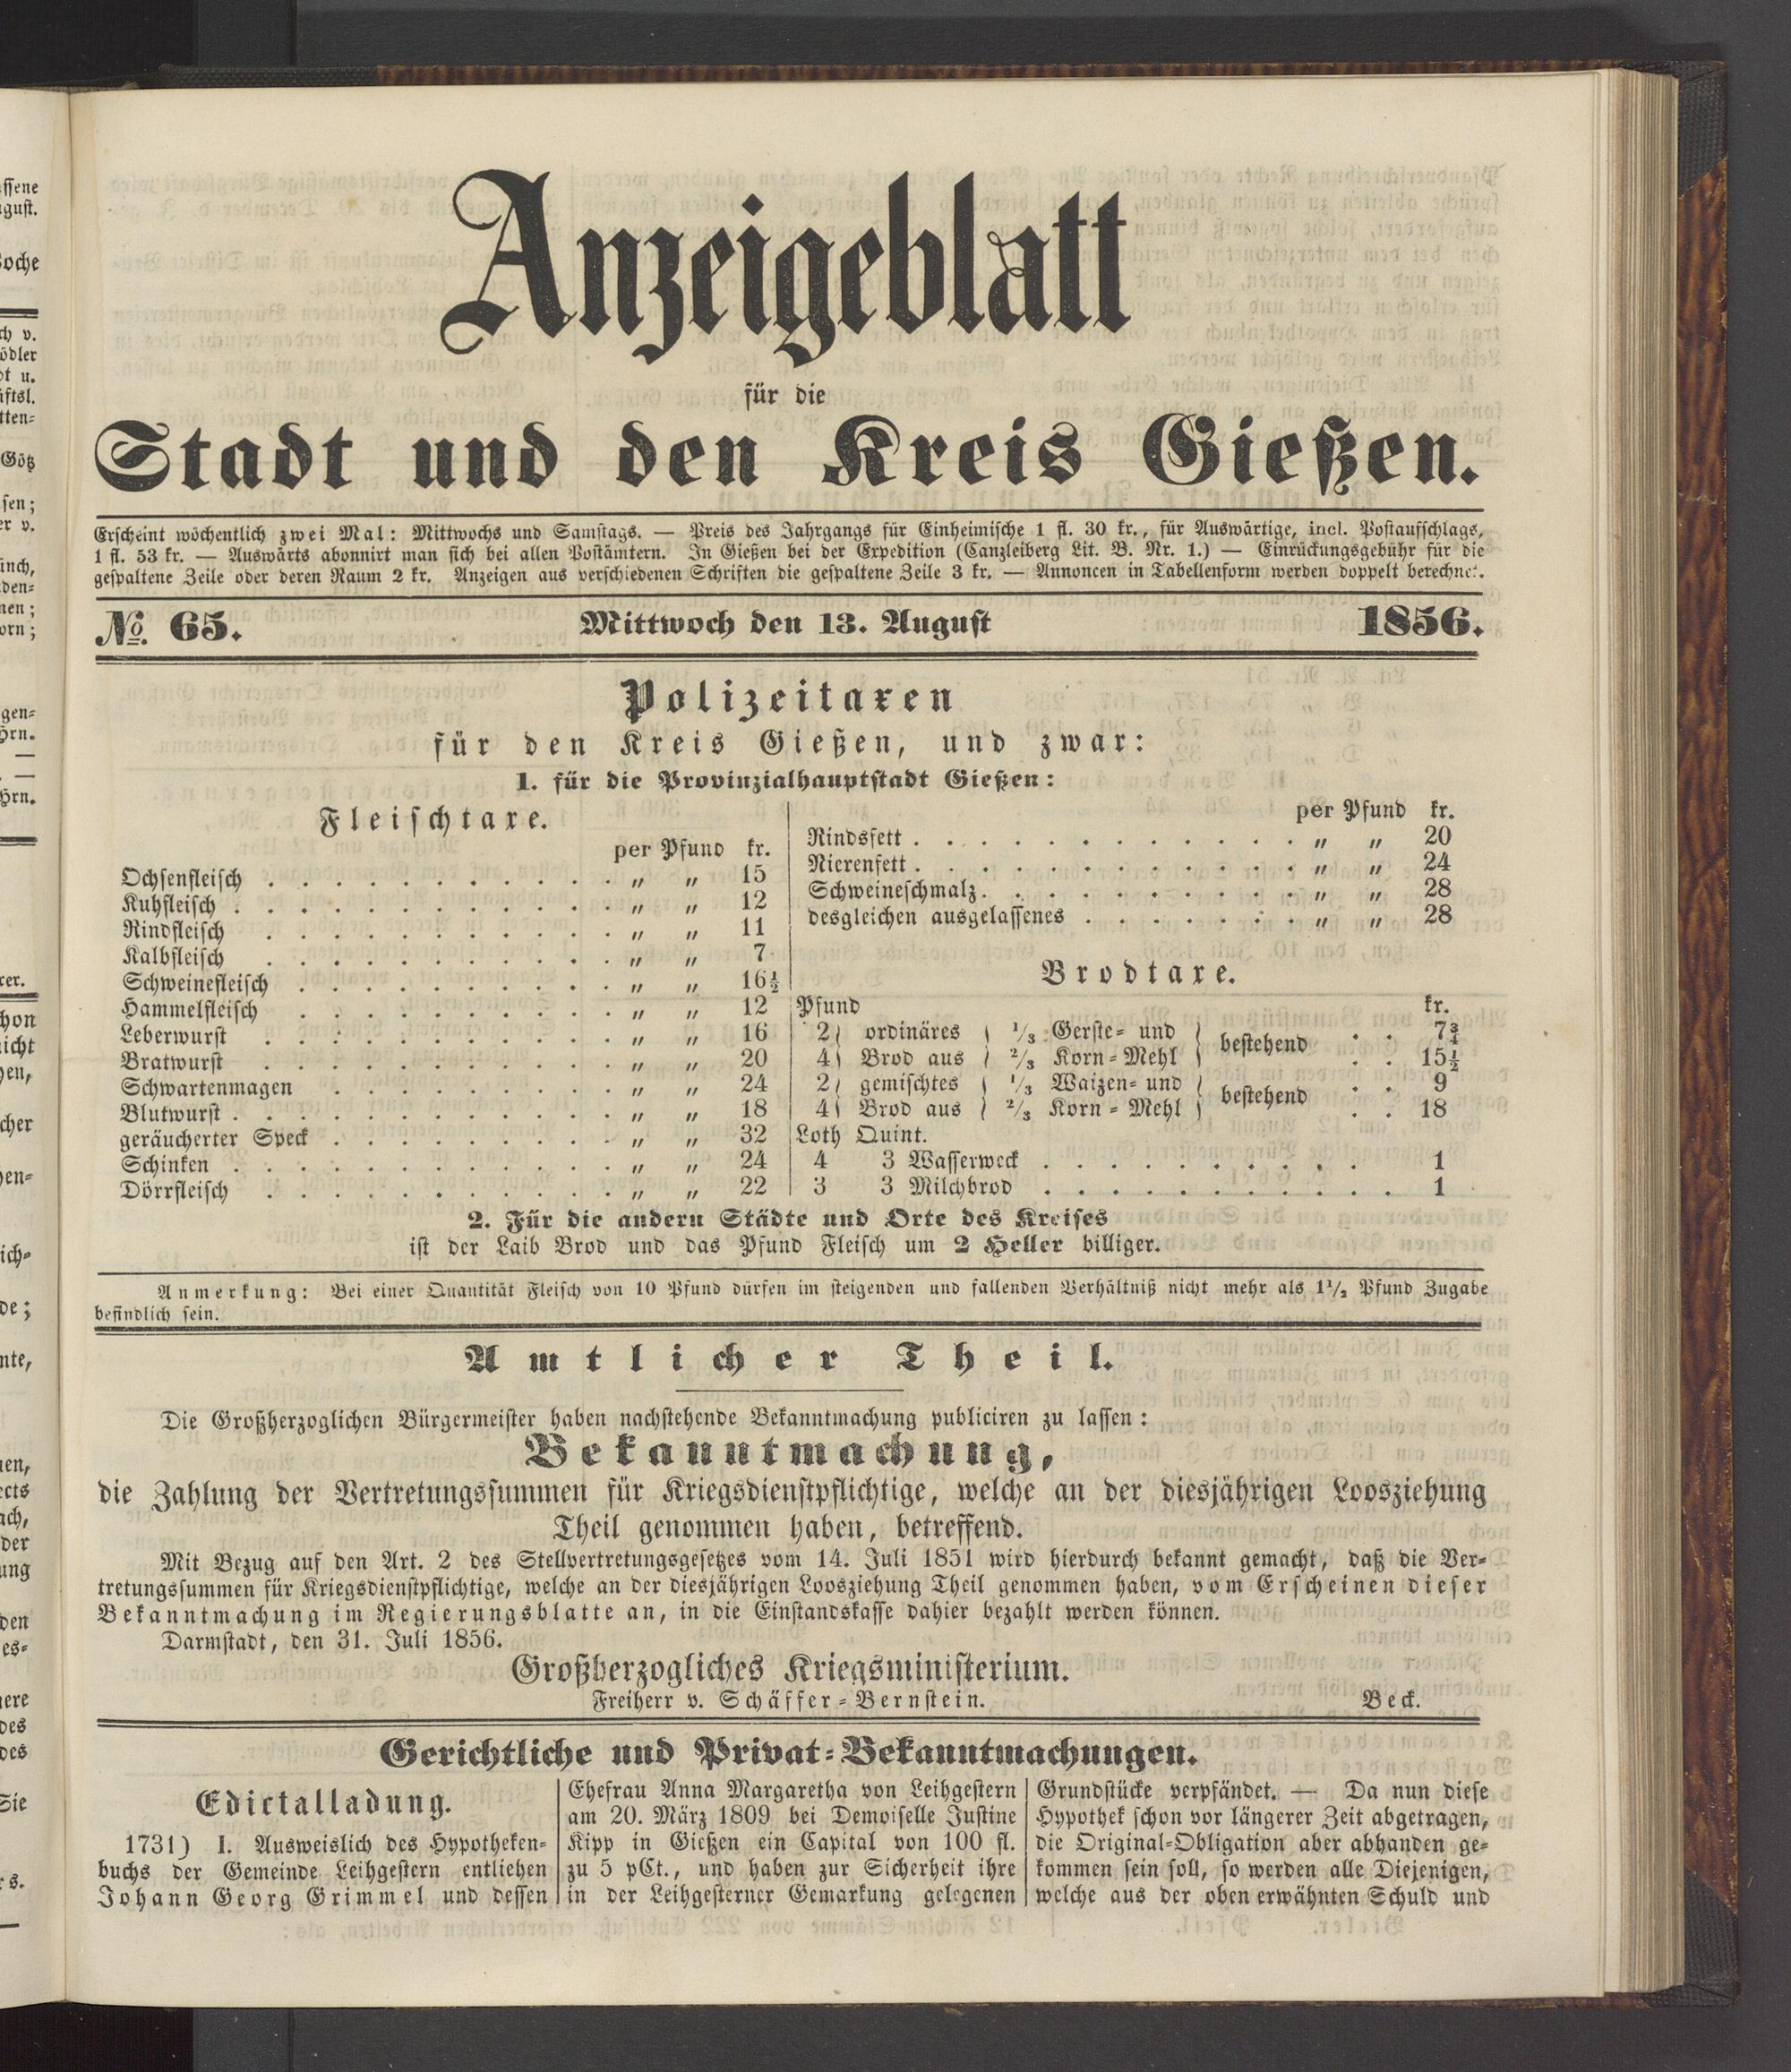 Anzeigeblatt
für die
Stadt und den Kreis Gießen.
Erscheint wöchentlich zwei Mal: Mittwochs und Samstags. — Preis des Jahrgangs für Einheimische 1 fl. 30 kr., für Auswärtige, incl. Postaufschlags,
1 fl. 53 kr. — Auswärts abonnirt man sich bei allen Postämtern. In Gießen bei der Expedition (Canzleiberg Lit. B. Nr. 1.) — Einrückungsgebühr für die
gespaltene Zeile oder deren Raum 2 kr. Anzeigen aus verschiedenen Schriften die gespaltene Zeile 3 kr. — Annoncen in Tabellenform werden doppelt berechnet.
No. 65. Mittwoch den 13. August 1856.
Polizeitaxen
für den Kreis Gießen, und zwar:
1. für die Provinzialhauptstadt Gießen:
Fleischtaxe.
per Pfund kr.
Ochsenfleisch . . . . . . . . . . . „ „ 15
Kuhfleisch . . . . . . . . . . . . „ „ 12
Rindfleisch . . . . . . . . . . . „ „ 11
Kalbfleisch . . . . . . . . . . . „ „ 7
Schweinefleisch . . . . . . . . . . „ „ 16½
Hammelfleisch . . . . . . . . . . „ „ 12
Leberwurst . . . . . . . . . . . „ „ 16
Bratwurst . . . . . . . . . . . „ „ 20
Schwartenmagen . . . . . . . . . „ „ 24
Blutwurst . . . . . . . . . . . . „ „ 18
geräucherter Speck . . . . . . . . . „ „ 32
Schinken . . . . . . . . . . . . „ „ 24
Dörrfleisch . . . . . . . . . . . „ „ 22
per Pfund kr.
Rindsfett . . . . . . . . . . . . „ „ 20
Nierenfett . . . . . . . . . . . . „ „ 24
Schweineschmalz . . . . . . . . . . „ „ 28
desgleichen ausgelassenes . . . . . . . „ „ 28
Brodtaxe.
Pfund kr.
2 } ordinäres { 1/3 Gerste= und } bestehend . . 7¾
4 } Brod aus { 2/3 Korn=Mehl } . . 15½
2 } gemischtes { 1/3 Waizen= und } bestehend . . 9
4 } Brod aus { 2/3 Korn=Mehl } . . 18
Loth Quint.
4 3 Wasserweck . . . . . . . . . . 1
3 3 Milchbrod . . . . . . . . . . . 1
2. Für die andern Städte und Orte des Kreises
ist der Laib Brod und das Pfund Fleisch um 2 Heller billiger.
Anmerkung: Bei einer Quantität Fleisch von 10 Pfund dürfen im steigenden und fallenden Verhältniß nicht mehr als 1½ Pfund Zugabe
befindlich sein.
Amtlicher Theil.
Die Großherzoglichen Bürgermeister haben nachstehende Bekanntmachung publiciren zu lassen:
Bekanntmachung,
die Zahlung der Vertretungssummen für Kriegsdienstpflichtige, welche an der diesjährigen Loosziehung
Theil genommen haben, betreffend.
Mit Bezug auf den Art. 2 des Stellvertretungsgesetzes vom 14. Juli 1851 wird hierdurch bekannt gemacht, daß die Ver=
tretungssummen für Kriegsdienstpflichtige, welche an der diesjährigen Loosziehung Theil genommen haben, vom Erscheinen dieser
Bekanntmachung im Regierungsblatte an, in die Einstandskasse dahier bezahlt werden können.
Darmstadt, den 31. Juli 1856.
Großherzogliches Kriegsministerium.
Freiherr v. Schäffer=Bernstein. Beck.
Gerichtliche und Privat=Bekanntmachungen.
Edictalladung.
1731) I. Ausweislich des Hypotheken=
buchs der Gemeinde Leihgestern entliehen
Johann Georg Grimmel und dessen
Ehefrau Anna Margaretha von Leihgestern
am 20. März 1809 bei Demoiselle Justine
Kipp in Gießen ein Capital von 100 fl.
zu 5 pCt., und haben zur Sicherheit ihre
in der Leihgesterner Gemarkung gelegenen
Grundstücke verpfändet. — Da nun diese
Hypothek schon vor längerer Zeit abgetragen,
die Original=Obligation aber abhanden ge=
kommen sein soll, so werden alle Diejenigen,
welche aus der oben erwähnten Schuld und